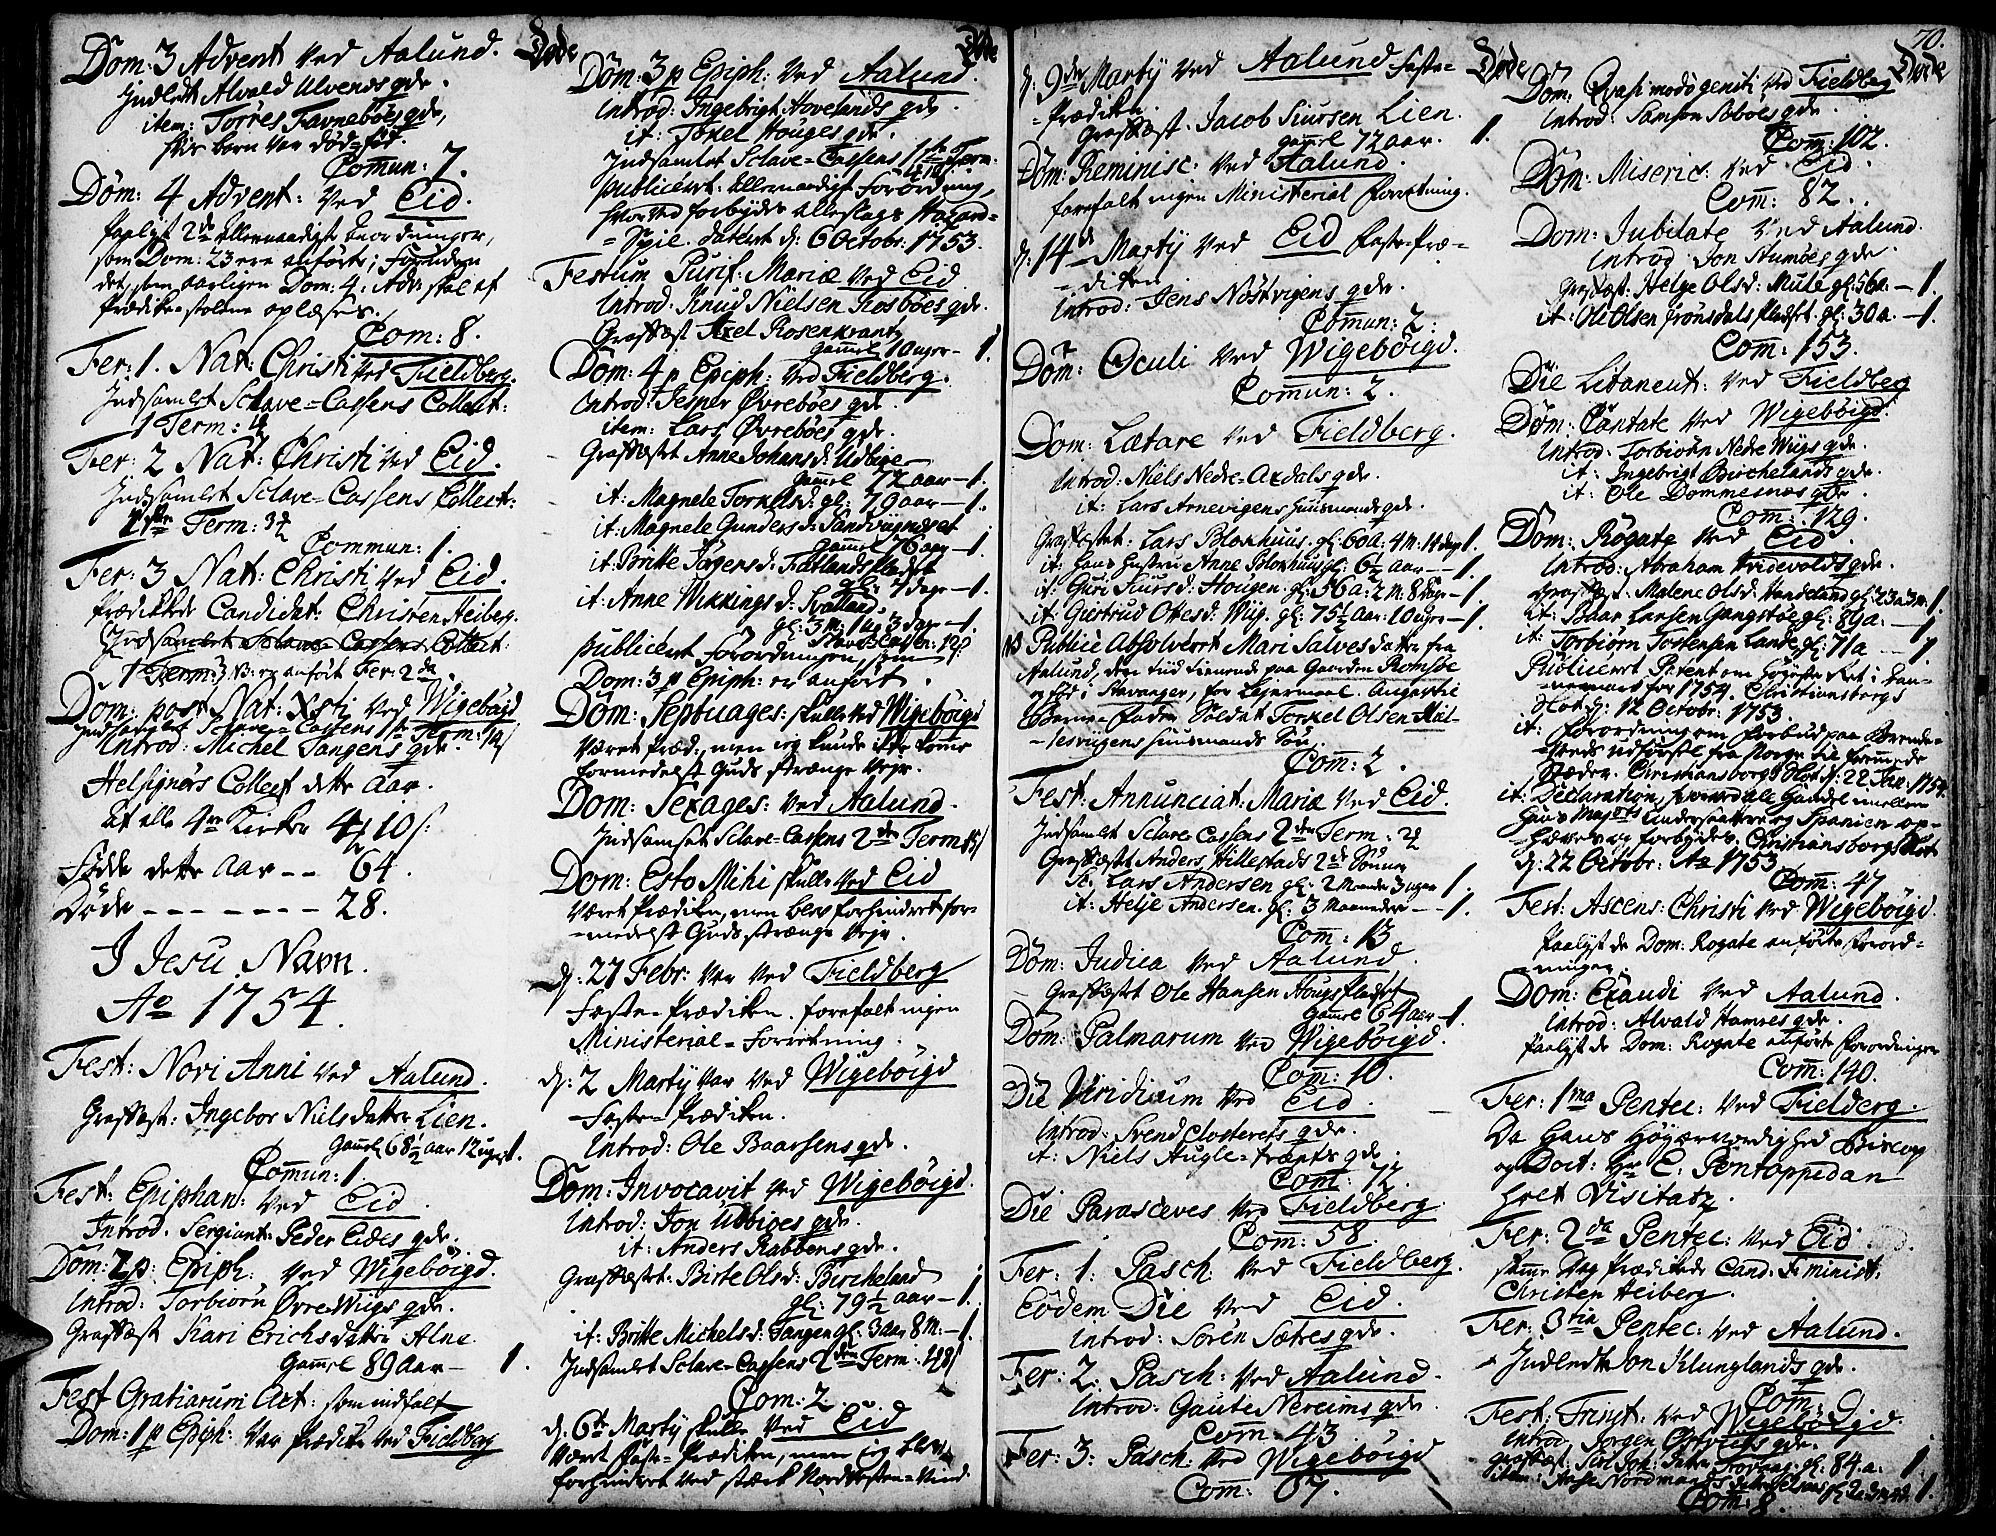 Døde
Dom: 3 Advent ved Aalund.
Indledt Alvald Alvends qde.
item: Torres Favnebøes qde,
hvis barn var død-fød.
Commun: 7.
Dom: 4 Advent: ved Eid.
paalyst 2de Allernaadigst
som Dom: 23 ere anførte; foruden
det, som aarligen Dom: 4: Adv: skal af
Prædike-stolene oplæses.
Com: 8.
Fer: 1. Nat: Christi ved Fieldberg.
Indsamlet Sclave-Cassens Collect:
1 Term:
Fer: 2 Nat: Christi ved Eid.
Indsamlet Sclave-Cassens Collect:
Term:
Commun: 1.
Fer: 3 Nat: Christi ved Eid.
Prædikede Candidat: Christen Heiberg.
Indsamlet Sclave-Cassens Collect:
1 Term: er anført Fer: 2da.
Dom: post Nat: Xsti ved Wigebøigd
Indsamlet Sclave-Cassens 1ste Term:
Introd: Michel Tangens qde.
Helsignørs Collect dette Aar.
af alle 4re Kirker 10 s:
Fødde dette Aar -- 64.
Døde ------- 28.
I Jesu Navn.
Ao 1754.
Fest: Novi Anni ved Aalund.
Graffæst: Ingebor Nielsdatter Lien.
Gamel 68½ aar 12 uger 1.
Comun: 1.
Fest: Epiphan: ved Eid.
Introd: Sergiant Peder Eides qde.
Dom: p: Epiph: ved Wigebøigd.
Introd: Torbiørn Øvre Wiigs qde.
Graffæst Kari Erichsdatter Alne
Gamel 89 Aar - 1.
Fest Gratiarum Act: som indfalt
Dom: 1 p Epiph: var Prædiken ved Fieldberg
Døde
Dom: 3 p Epiph: ved Aalund.
Introd: Ingebrigt Hovelands qde.
it: Torkel Houges qde.
Indsamlet Sclave-Cassens 1ste Term:
publiceret: Allernaadigst Forordning,
hvorved forbydes alleslags Hazard-
= Spil. datert d: 6 Octobr: 1753.
Festum Purif: Mariæ ved Eid
Introd: Knud Nielsen Røsbøes qde.
Graffæst Axel Rosenkrantz
gamel 10 uger - 1.
Dom: 4 p Epiph: ved Fieldberg.
Introd: Jesper Øvrebøes qde.
item: Lars Øvrebøes qde.
Graffæstet Anne Johansd: Udbiøe
Gamel 77 aar - 1.
it: Magnele Torkelsd: gl: 79 aar - 1.
it: Magnele Gundersd: Sandvigneset
Gamel 76 aar - 1.
it: Britte Jørgensd: Fatlands Pladset
gl: 7 dage - 1.
it: Anne Wikkingsd: Svolland.
gl: 3 M: 1 ug 3 dage - 1.
publicert Forordningen, som
Dom: 3 p Epiph: er anført.
Dom: Septuages: skulle ved Wigebøigd
Været Præd:, men ieg kunde ikke komme
formedelst Guds strænge Vejr.
Dom: Sexages: ved Aalund.
Indsamlet Sclave-Cassens 2den Term 15
Dom: Esto Mihi skulle ved Eid
Været Prædiken, men blev forhindret for-
=medelst Guds strænge Vejr.
d: 27 Febr: var ved Fieldberg
Faste-Prædiken. forefalt ingen
Ministerial-Forretning.
d: 2 Martij var ved Wigebøigd
Faste-Prædiken.
Introd: Ole Baarsens qde.
Dom: Invocavit ved Wigebøigd.
Introd: Jon Udbiøes qde.
it: Anders Rabbens qde.
Graffæstet: Birte Olsd: Bircheland
gl: 79½ aar - 1.
it: Britte Michelsd: Tangen gl: 3 aar 8 M: - 1.
Indsamlet Sclave-Cassens 2den Term: 48
Com: 2
d: 6te Martij skulle ved Eid
Været Faste-Prædiken, men ieg blev
forhindret ved stærk Nordvesten-Vind.
Døde
d: 9de Martij ved Aalund Faste-
=Prædiken.
Graffæst: Jacob Siursen Lien.
Gamel 72 aar. 1.
Dom: Reminisc: ved Aalund.
forefalt ingen Ministerial Forretning.
d: 14de Martij ved Eid Faste-Præ-
=diken
Introd: Jens Nøstvigens qde.
Commun: 2:
Dom: Oculi ved Wigebøigd.
Commun: 2.
Dom: Lætare ved Fieldberg.
Introd: Niels Nedre-Axdals qde.
it: Lars Arnevigens Huusmands qde.
Graffæstet: Lars Blokhuus. gl: 60 a: 4 M: 14 dage 1.
it: hans Hustru Anne Blokhuus gl: 6½ aar -- 1.
it: Guri Siursd: Hougen. gl: 56 a: 2 M: 8 dage - 1.
it: Giertrud Ottesd: Wiig. gl: 75½ aar: 10 uger - 1.
NB Publice Absolveret Mari Salvesdatter fra
Aalund, den tiid tienende paa Gaarden Romsøe
og fød i Stavanger, for Lejermaal. Angav til
Barne-Fader Soldat Torkel Olsen Hal-
-lesviigens Huusmands Søn.
Com: 2.
Fest: Annunciat: Mariæ ved Eid.
Indsamlet Sclave Cassens 2den Term:
Graffæstet Anders Hillestads 2de Sønner
N: Lars Andersen gl: 2 Maaneder 3 uger 1.
it: Helje Andersen gl: 3 Maaneder -- 1.
Com: 13
Dom: Judica ved Aalund.
Graffæstet Ole Hansen Hougs Pladset
Gamel 64 aar - 1.
Dom: Palmarum ved Wigebøigd.
Com: 10.
Die Viridium ved Eid.
Introd: Svend Closterets qde.
it: Niels Augle-træets qde.
Com: 72.
Die Parasceves ved Fieldberg
Com: 58.
Fer: 1: Pasch ved Fieldberg.
Eodem Die ved Eid.
Introd: Søren Sætres qde.
Fer: 2: Pasch: ved Aalund.
Introd: Gaute Nereims qde.
Com: 43
Fer: 3: Pasch: ved Wigebøigd
Com: 67.
70.
Døde
Dom: Qvasimodogeniti ved Fieldberg
Introd: Samson Søbøes qde.
Com: 102.
Dom: Miseric: ved Eid.
Com: 82.
Dom: Jubilate ved Aalund.
Introd: Jon Stumøes qde
Graffæst: Helge Olsd: Mule gl: 56 a. - 1.
it: Ole Olsen Grønsdals Pladset. gl: 30 a. - 1.
Com: 153.
Die Litaneut: ved Fieldberg
Dom: Cantate ved Wigebøigd.
Introd: Torbiørn Nedre Wiigs qde.
it: Ingebrigt Birchelands qde.
it: Ole Dommesnæs qde.
Com: 129.
Dom: Rogate ved Eid.
Introd: Abraham Hvidevolds qde.
Graffæst: Malene Olsd: Handeland gl: 23 a 3 M: 1.
it: Baar Larsen Gangstøe gl: 89 a: -- 1
it: Torbiørn Tostensen Lande gl: 71 a -- 1
Publiceret Patent om Høyeste Ret i Dan-
=nemark for 1754. Christiansborgs
Slot d: 12 Octobr: 1753.
it: Forordning om Forbud paa Brende-
=veds udførsel fra Norge til fremmede
Stæder. Christiansborgs Slot d: 22 Jan: 1754.
it: Declaration, hvorved ale Handel mellem
Hans Majsts Undersaattere og Spanien op-
=hæves og forbydes. Christiansborgs Slot
d: 22 Octobr: Ao 1753
Com: 47
Fest: Ascens: Christi ved Wigebøigd.
Paalyst de Dom: Rogate anførte Forord-
=ninger.
Dom: Exaudi ved Aalund.
Introd: Alvald Hamres qde.
Paalyst de Dom: Rogate anførte Forordninger
Com: 140.
Fer: 1ma Pentec: ved Fielderg.
Da Hans Højærværdighed Biscop
og Doct: Hr E. Pontoppidan
holt Visitatz.
Fer: 2da Pentec: ved Eid.
samme Dag Prædikede Cand: S: minist:
Christen Heiberg.
Fer: 3tia Pentec: ved Aalund.
Indledt Jon Klunglands qde.
Com: 9
Fest: Trinit: ved Wigebøigd.
Introd: Jørgen qde.
Graffæst: gl: 84 a. 1.
Item: 1.
Com: 8.